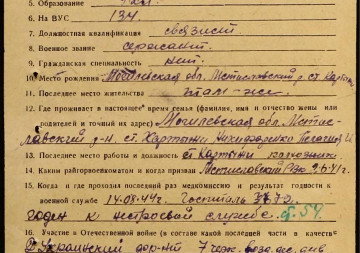 5. Образование 9 кл.
6. На ВУС 134
7. Должностная квалификация связист
8. Военное звание сержант
9. Гражданская специальность нет
10. Место рождения Могилевская обл. Мстиславский р. ст
11. Последнее место жительства там-же
12. Где проживает в настоящее время семья (фамилия, имя и отчество жены или
родителей и точный их адрес) Могилевская обл. Мстис-
лавский р-н, ст.
13. Последнее место работы и должность ст
14. Каким райгорвоенкоматом и когда призван Мстиславский Рвк 26.41 г.
15. Когда и где проходил последний раз медкомиссию и результат годности к
военной службе 14-08-44 г. Госпиталь
годен к нестроевой службе ст. 54.
16. Участие в Отечественной войне (в составе какой последней части и в качестве
2й Украинский фр-нт 7 возд. дес. див